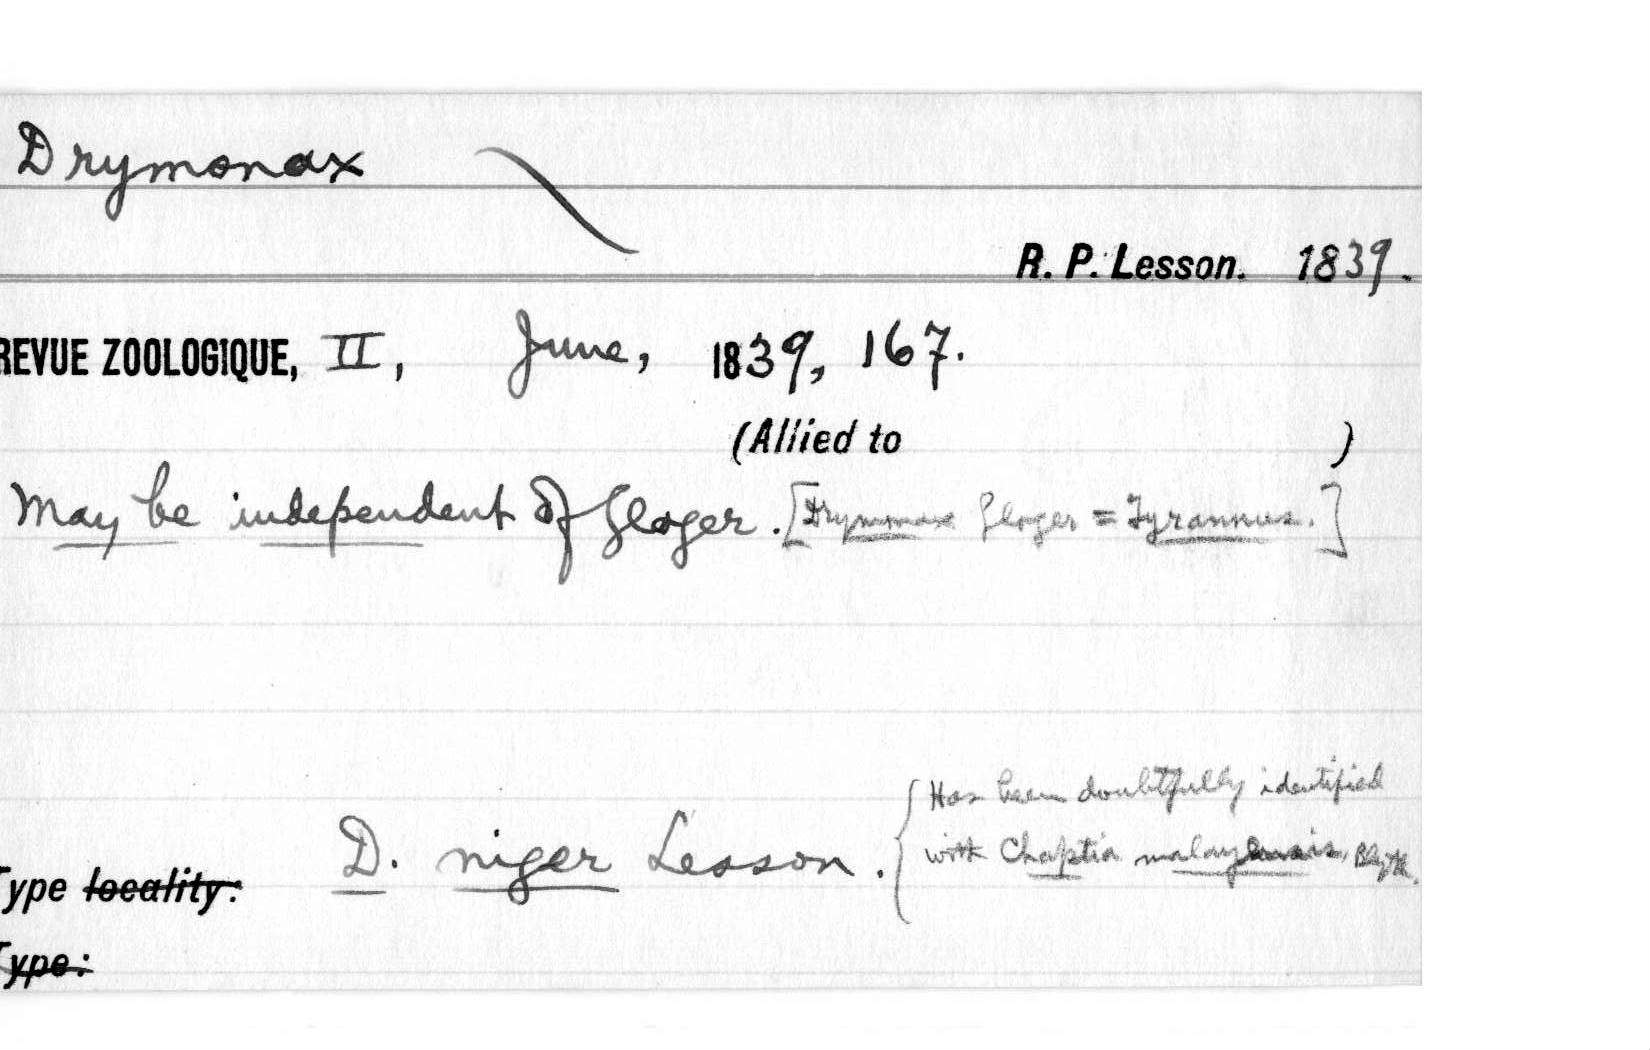 Drymonax
R. P. Lesson. 1839.
REVUE ZOOLOGIQUE, II, June, 1839, 167.
(Allied to )
May be independent of Gloger. [Drymonax Gloger = Tyrannus.]
Has been doubtfully identified
with Chaptia malayensis, Blyth.
D. niger Lesson.
Type locality:
Type: